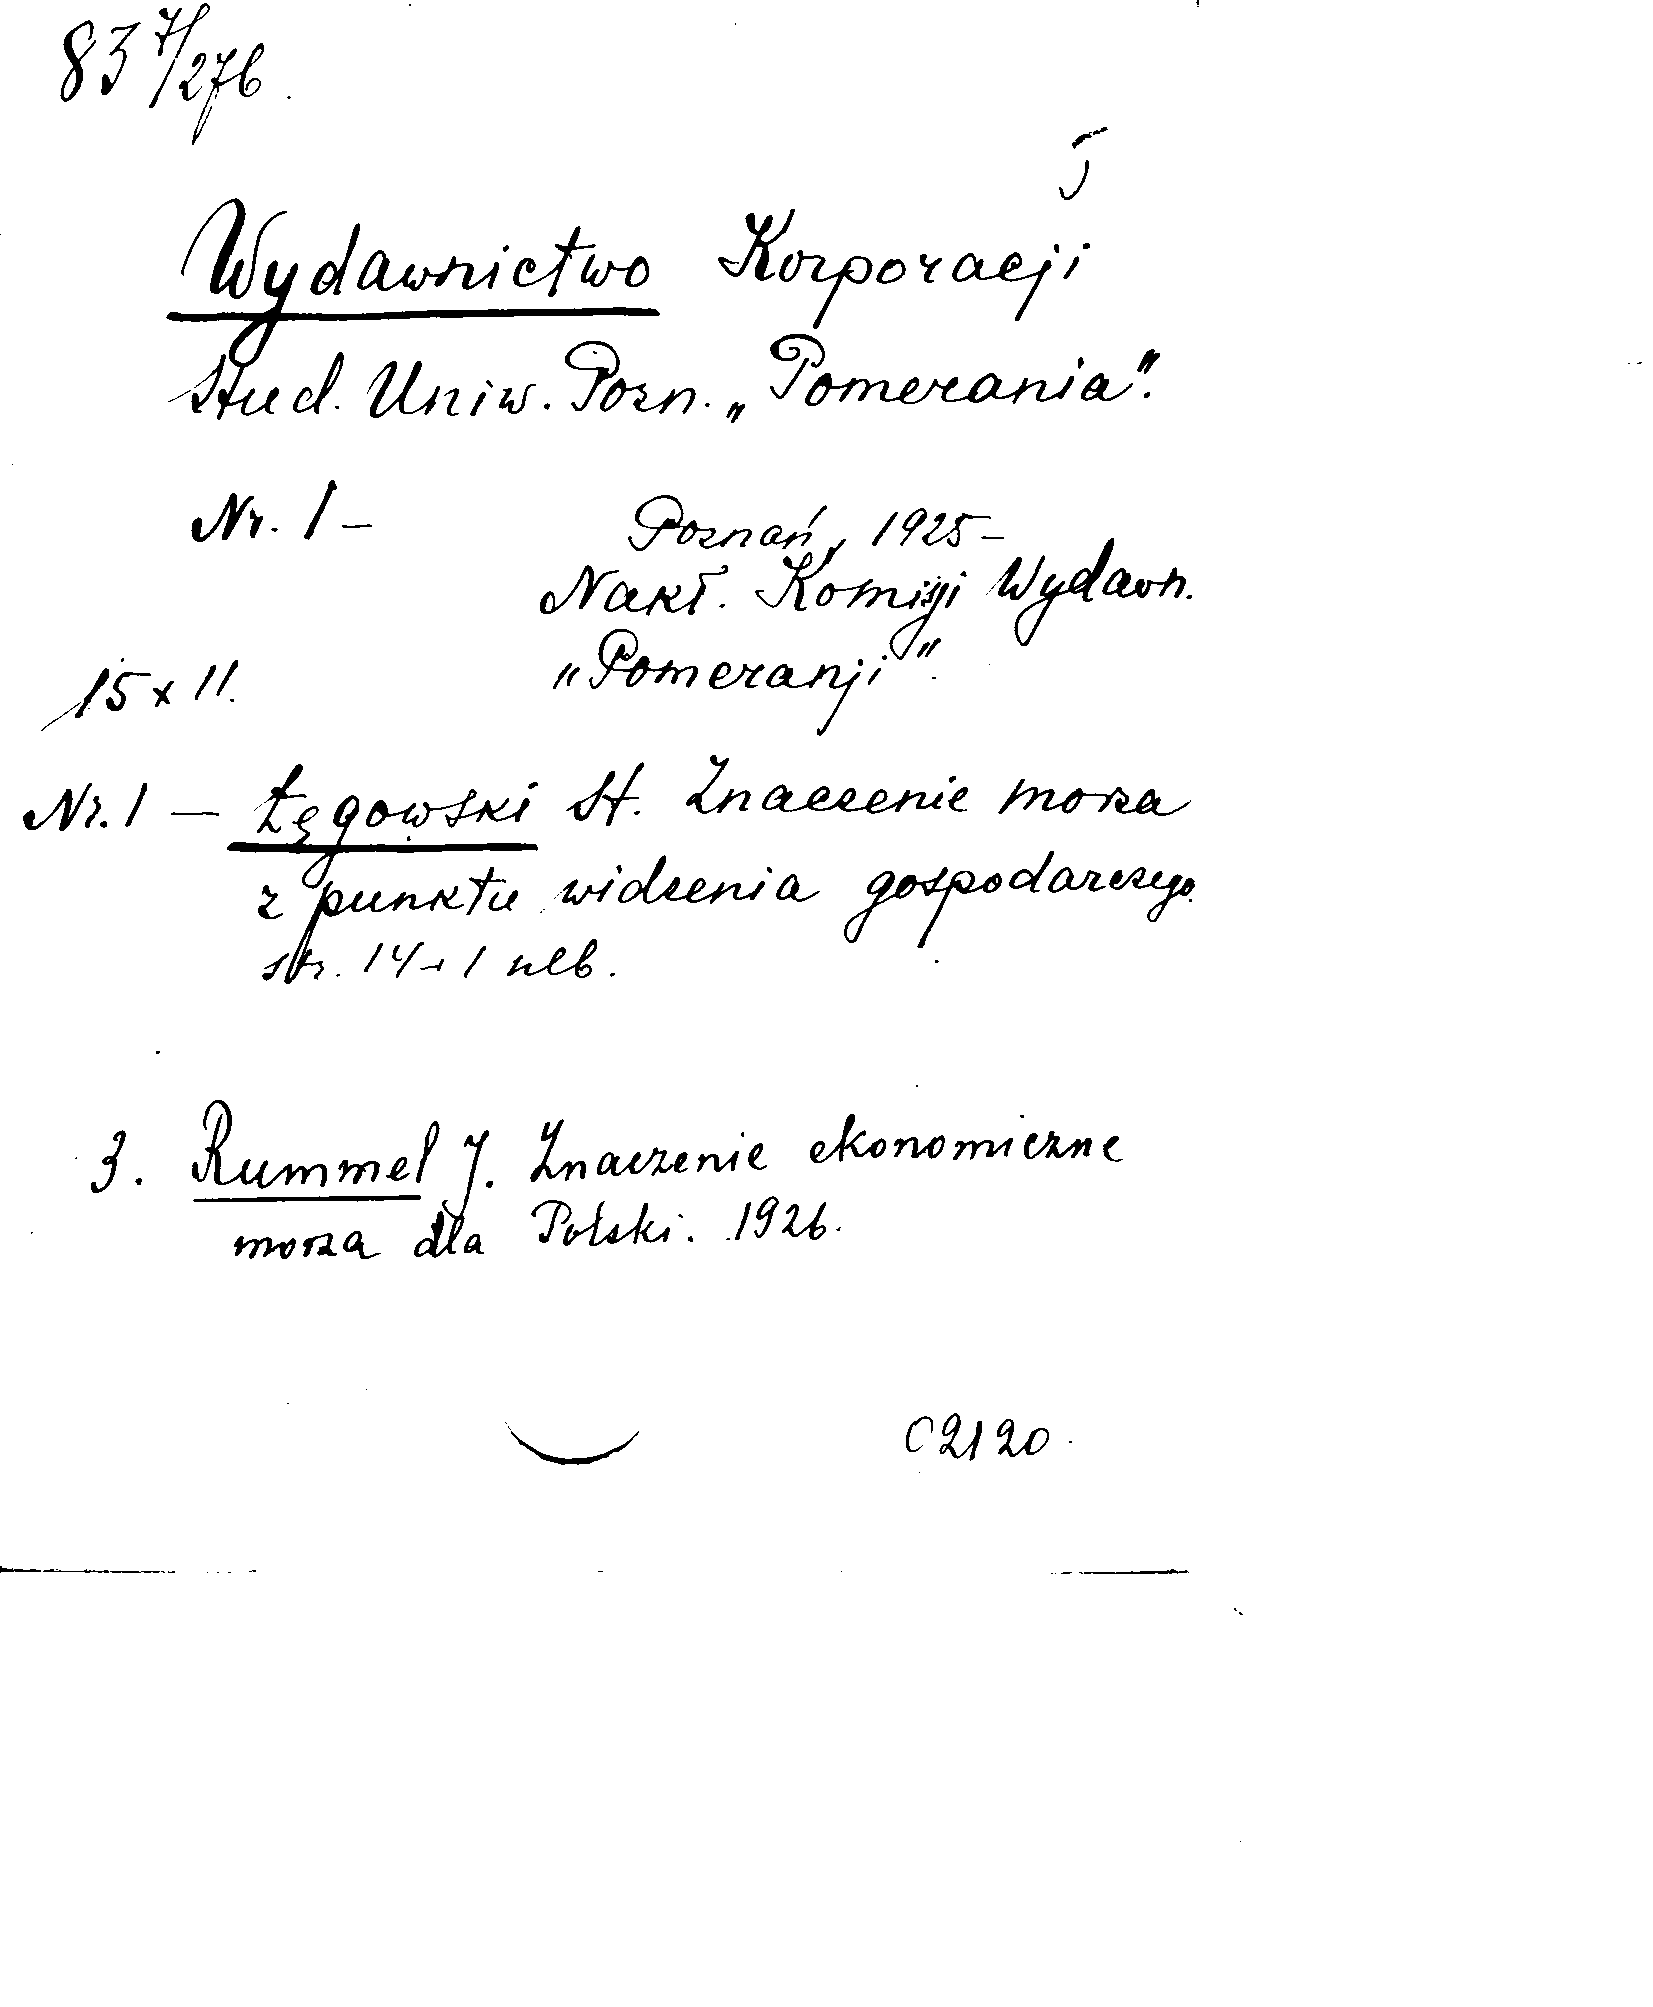 83 7/276.
Wydawnictwo Korporacji
Stud. Uniw. Pozn. „Pomerania".
Nr. 1 —
Poznań, 1925 —
Nakł. Komisji Wydawn.
"Pomeranji".
15 x 11.
Nr. 1 — Łęgowski St. Znaczenie morza
z punktu widzenia gospodarczego.
str. 14 + 1 nlb.
3. Rummel J. Znaczenie ekonomiczne
morza dla Polski. 1926.
C2120.